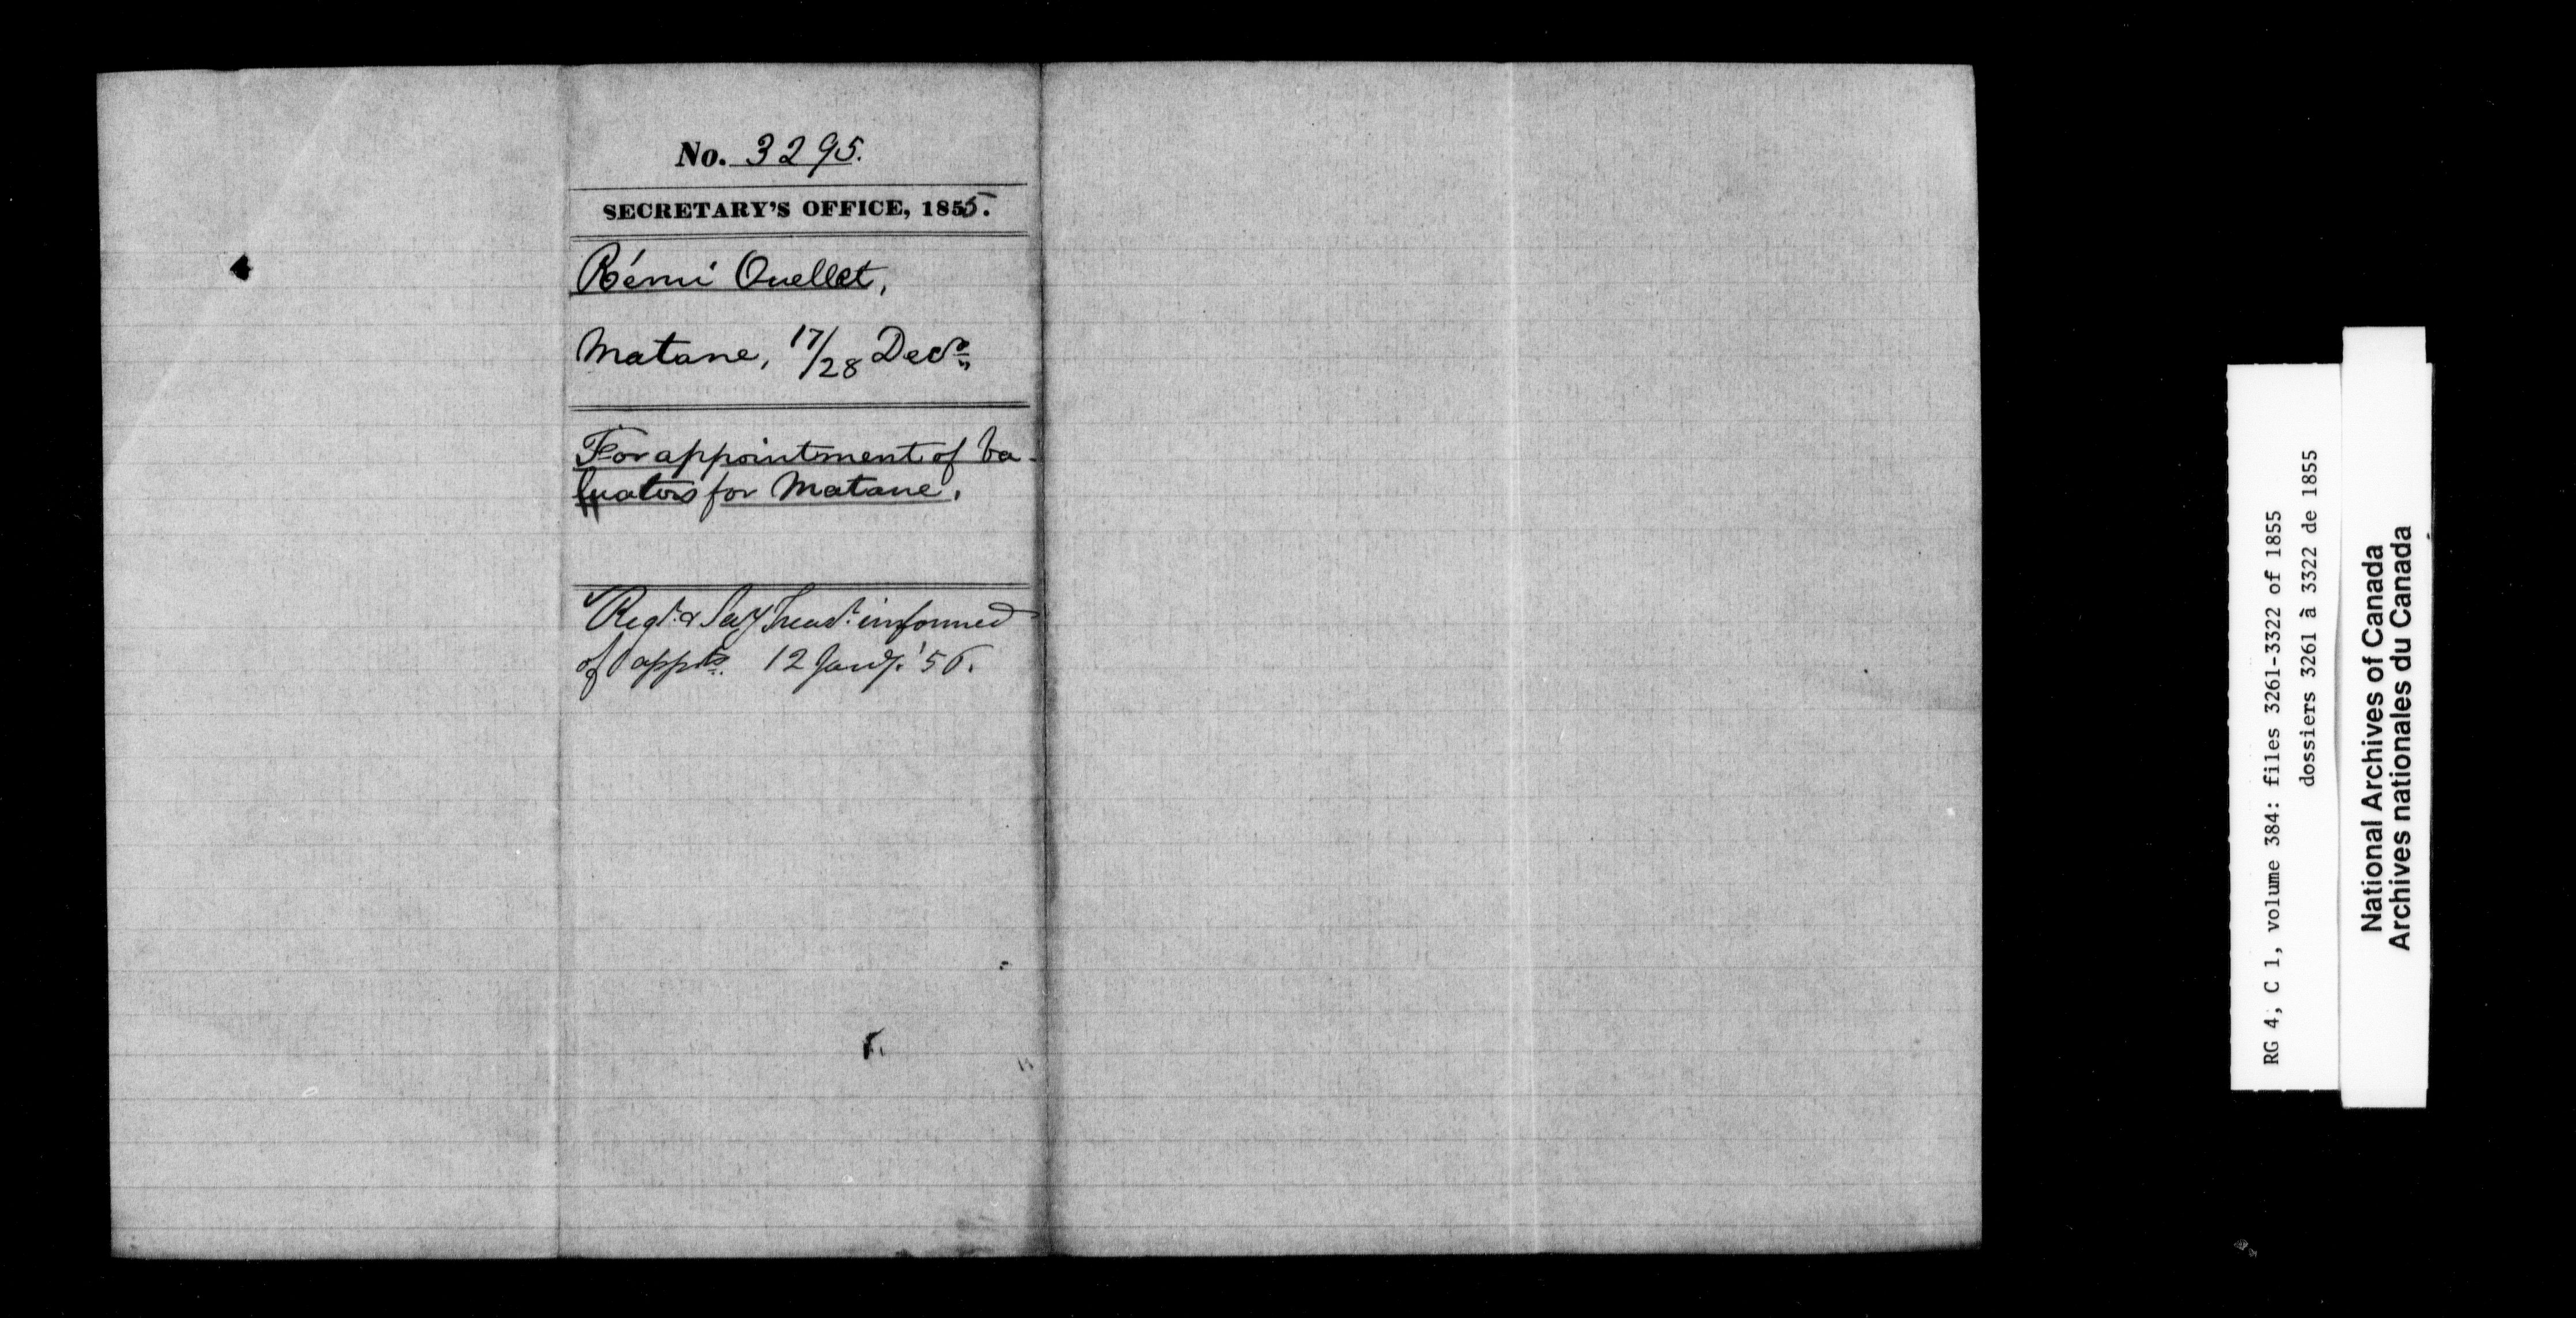 No. 3295.
SECRETARY'S OFFICE, 1855.
Rémi Ouellet,
Matane, 17/28 Decr.
For appointment of Va-
luators for Matane.
Regr. & Secy Treasr. informed
of appts. 12 Jany. '56.
RG 4, C 1, volume 384: files 3261-3322 of 1855
dossiers 3261 à 3322 de 1855
National Archives of Canada
Archives nationales du Canada